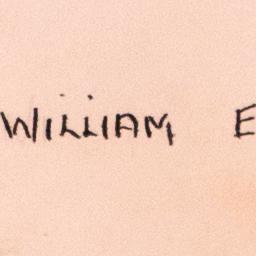 WILLIAM E